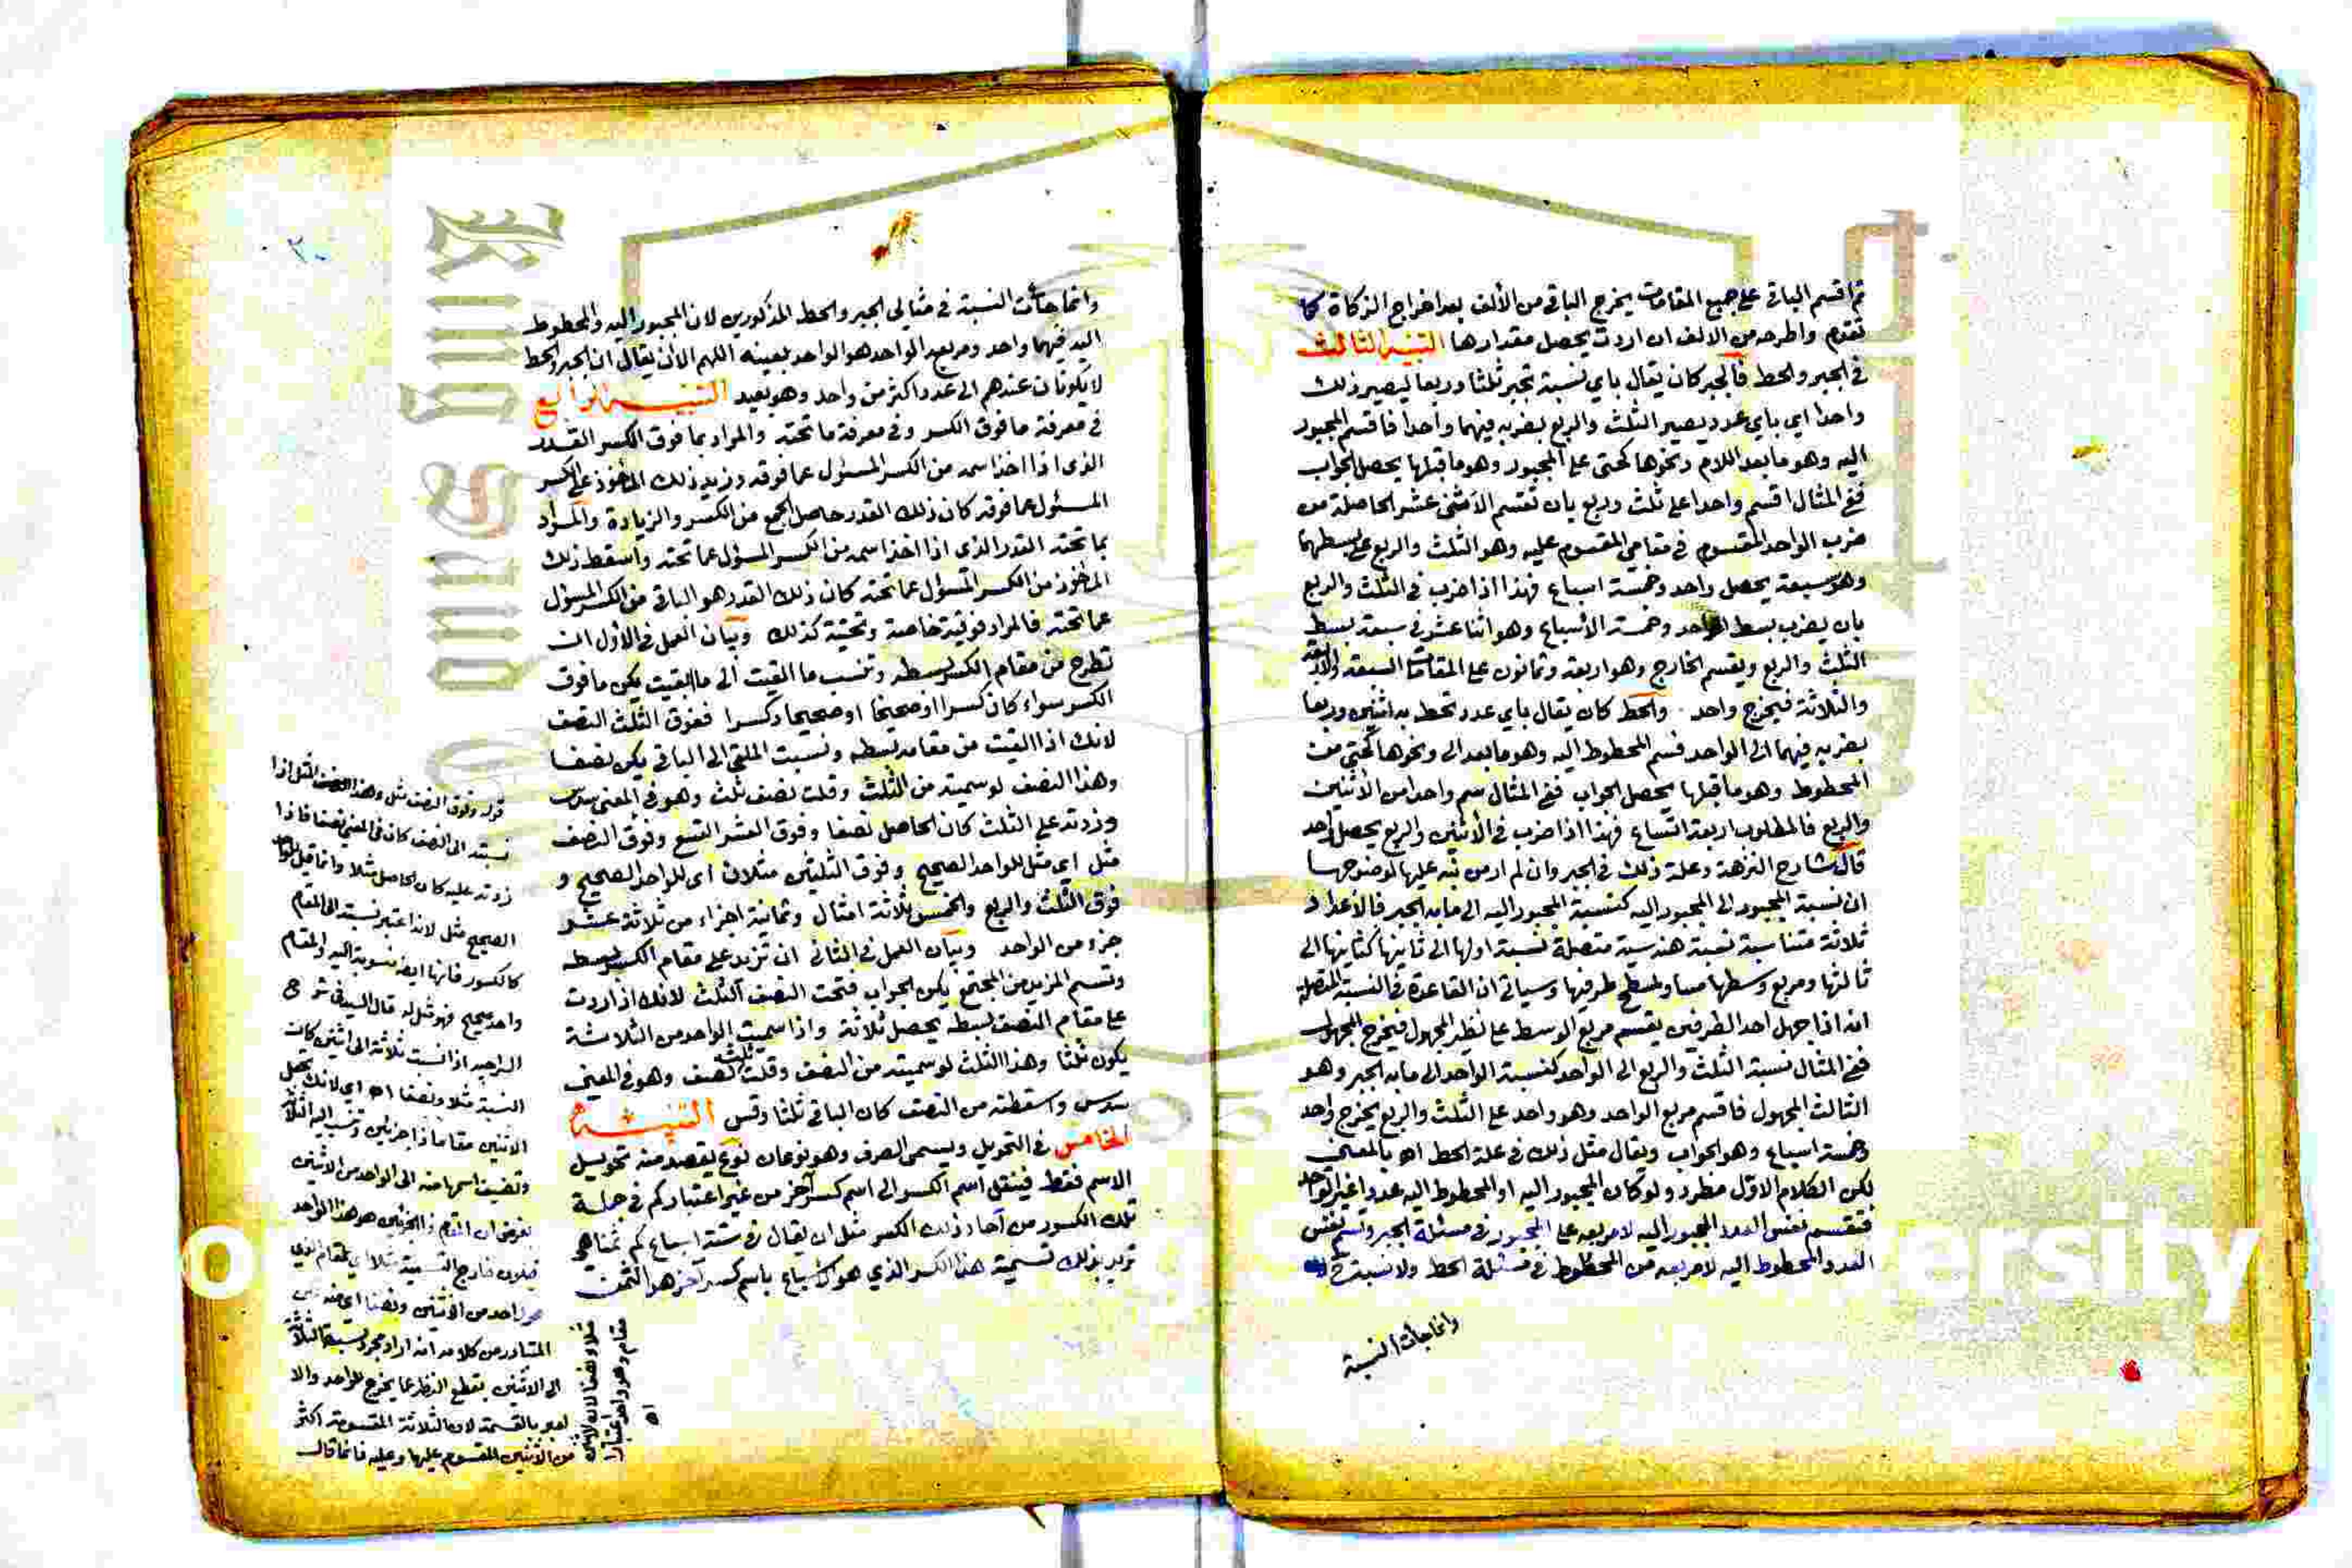 ثم اقسم الباقي على جميع المقامات يخرج الباقي من الألف بعد اخراج الزكاة كما
تقدم واطرحه من الالف ان اردت يحصل مقدارها التنبيه الثالث
في الجبر والحط فالجبر كان يقال باي نسبة تجبر ثلثا وربعا ليصير ذلك
واحدا اي باي عدد يصير الثلث والربع بضربه فيهما واحدا فاقسم المجبور
اليه وهو ما بعد اللام ونحوها كحتى على المجبور وهو ما قبلها يحصل الجواب
ففي المثال اقسم واحدا على ثلث وربع بان تقسم الاثنى عشر الحاصلة من
ضرب الواحد المقسوم في مقامي المقسوم عليه وهو الثلث والربع على بسطهما
وهو سبعة يحصل واحد وخمسة اسباع فهذا اذا ضرب في الثلث والربع
بان يضرب بسط الواحد وخمسة الأسباع وهو اثنا عشر في سبعة بسط
الثلث والربع ويقسم الخارج وهو اربعة وثمانون على المقامات السبعة والاربعة
والثلاثة فيخرج واحد والحط كان يقال باي عدد تحط به اثنين وربعا
بضربه فيهما الى الواحد فسم المحطوط اليه وهو ما بعد الى ونحوها كحتى من
المحطوط وهو ما قبلها يحصل الجواب ففي المثال سم واحدا من الاثنين
والربع فالمطلوب اربعة اتساع فهذا اذا ضرب في الاثنين والربع يحصل واحد
قال شارح النزهة وعلة ذلك في الجبر وان لم ار من نبه عليها لوضوحها
ان نسبة المجبور الى المجبور اليه كنسبة المجبور اليه الى ما به الجبر فالأعداد
ثلاثة متناسبة نسبة هندسية متصلة نسبة اولها الى ثانيها كثانيها الى
ثالثها ومربع وسطها مساو لمسطح طرفيها وسياتي ان القاعدة في النسبة المتصلة
انه اذا جهل احد الطرفين يقسم مربع الوسط على نظير المجهول فيخرج المجهول
ففي المثال نسبة الثلث والربع الى الواحد كنسبة الواحد الى ما به الجبر وهو
الثالث المجهول فاقسم مربع الواحد وهو واحد على الثلث والربع يخرج واحد
وخمسة اسباع وهو الجواب ويقال مثل ذلك في علة الحط اه بالمعنى
لكن الكلام الاول مطرد ولو كان المجبور اليه او المحطوط اليه عددا غير الواحد
فتقسم نفس العدد المجبور اليه لا مربعه على المجبور في مسئلة الجبر وتسم نفس
العدد المحطوط اليه لا مربعه من المحطوط في مسئلة الحط ولا نسبة
وانما جأت النسبة
وانما جأت النسبة في مثالي الجبر والحط المذكورين لان المجبور اليه والمحطوط
اليه فيهما واحد ومربع الواحد هو الواحد بعينه اللهم الا ان يقال ان الجبر والحط
لا يكونان عندهم الى عدد اكثر من واحد وهو بعيد التنبيه الرابع
في معرفة ما فوق الكسر وفي معرفة ما تحته والمراد بما فوق الكسر القدر
الذي اذا اخذ اسمه من الكسر المسئول عما فوقه وزيد ذلك المأخوذ على الكسر
المسئول عما فوقه كان ذلك القدر حاصل الجمع من الكسر والزيادة والمراد
بما تحته القدر الذي اذا اخذ اسمه من الكسر المسؤل عما تحته واسقط ذلك
المأخوذ من الكسر المسؤل عما تحته كان ذلك القدر هو الباقي من الكسر المسؤل
عما تحته فالمراد فوقية خاصة وتحتية كذلك وبيان العمل في الأول ان
تطرح من مقام الكسر بسطه وتنسب ما القيت الى ما ابقيت يكن ما فوق
الكسر سواء كان كسرا او صحيحا او صحيحا وكسرا ففوق الثلث النصف
لانك اذا القيت من مقامه بسطه ونسبت الملقى الى الباقي يكن نصفا
وهذا النصف لو سميته من الثلث وقلت نصف ثلث وهو في المعنى سدس
وزدته على الثلث كان الحاصل نصفا وفوق العشر التسع وفوق النصف
مثل اي مثل للواحد الصحيح وفوق الثلثين مثلان اي للواحد الصحيح و
فوق الثلث والربع والخمس ثلاثة امثال وثمانية اجزاء من ثلاثة عشر
جزء من الواحد وبيان العمل في الثاني ان تزيد على مقام الكسر بسطه
وتسم المزيد من المجتمع يكن الجواب فتحت النصف الثلث لانك اذا زدت
على مقام النصف بسطه يحصل ثلاثة واذا سميت الواحد من الثلاثة
يكون ثلثا وهذا الثلث لو سميته من النصف وقلت ثلث نصف وهو في المعنى
سدس واسقطته من النصف كان الباقي ثلثا وقس التنبيه
الخامس في التحويل ويسمى الصرف وهو نوعان نوع يقصد منه تحويل
الاسم فقط فينقل اسم الكسر الى اسم كسر آخر من غير اعتبار كم في جملة
تلك الكسور من آحاد ذلك الكسر مثل ان يقال في ستة اسباع كم ثمنا هي
تريد بذلك تسمية هذا الكسر الذي هو كاسباع باسم كسر آخر هو الثمن
قوله وفوق النصف مثل وهذا النصف المثل اذا
نسبته الى النصف كان في المعنى نصفا فاذا
زدته عليه كان الحاصل مثلا وانما قيل للواحد
الصحيح مثل لانه اعتبر نسبته الى المقام
كالكسور فانها ايضا منسوبة اليه والمقام
واحد صحيح فهو مثل له قال السبط في شرح
الرحبية اذا نسبت ثلاثة الى اثنين كانت
النسبة مثلا ونصفا اه اي لانك تجعل
الاثنين مقاما ذا جزئين وتنسب اليه الثلاثة
وتضيف اسمها منه الى الواحد من الاثنين
المتبادر من كلامه انه اراد مجرد نسبة الثلاثة
الى الاثنين بقطع النظر عما يخرج للواحد والا
لعبر بالقسمة لان الثلاثة المقسومة اكثر
من الاثنين المقسوم عليها وعليه فانما قال
مثلا ونصفا لان الاثنين
مقام وهو واحد اعتبارا
اه